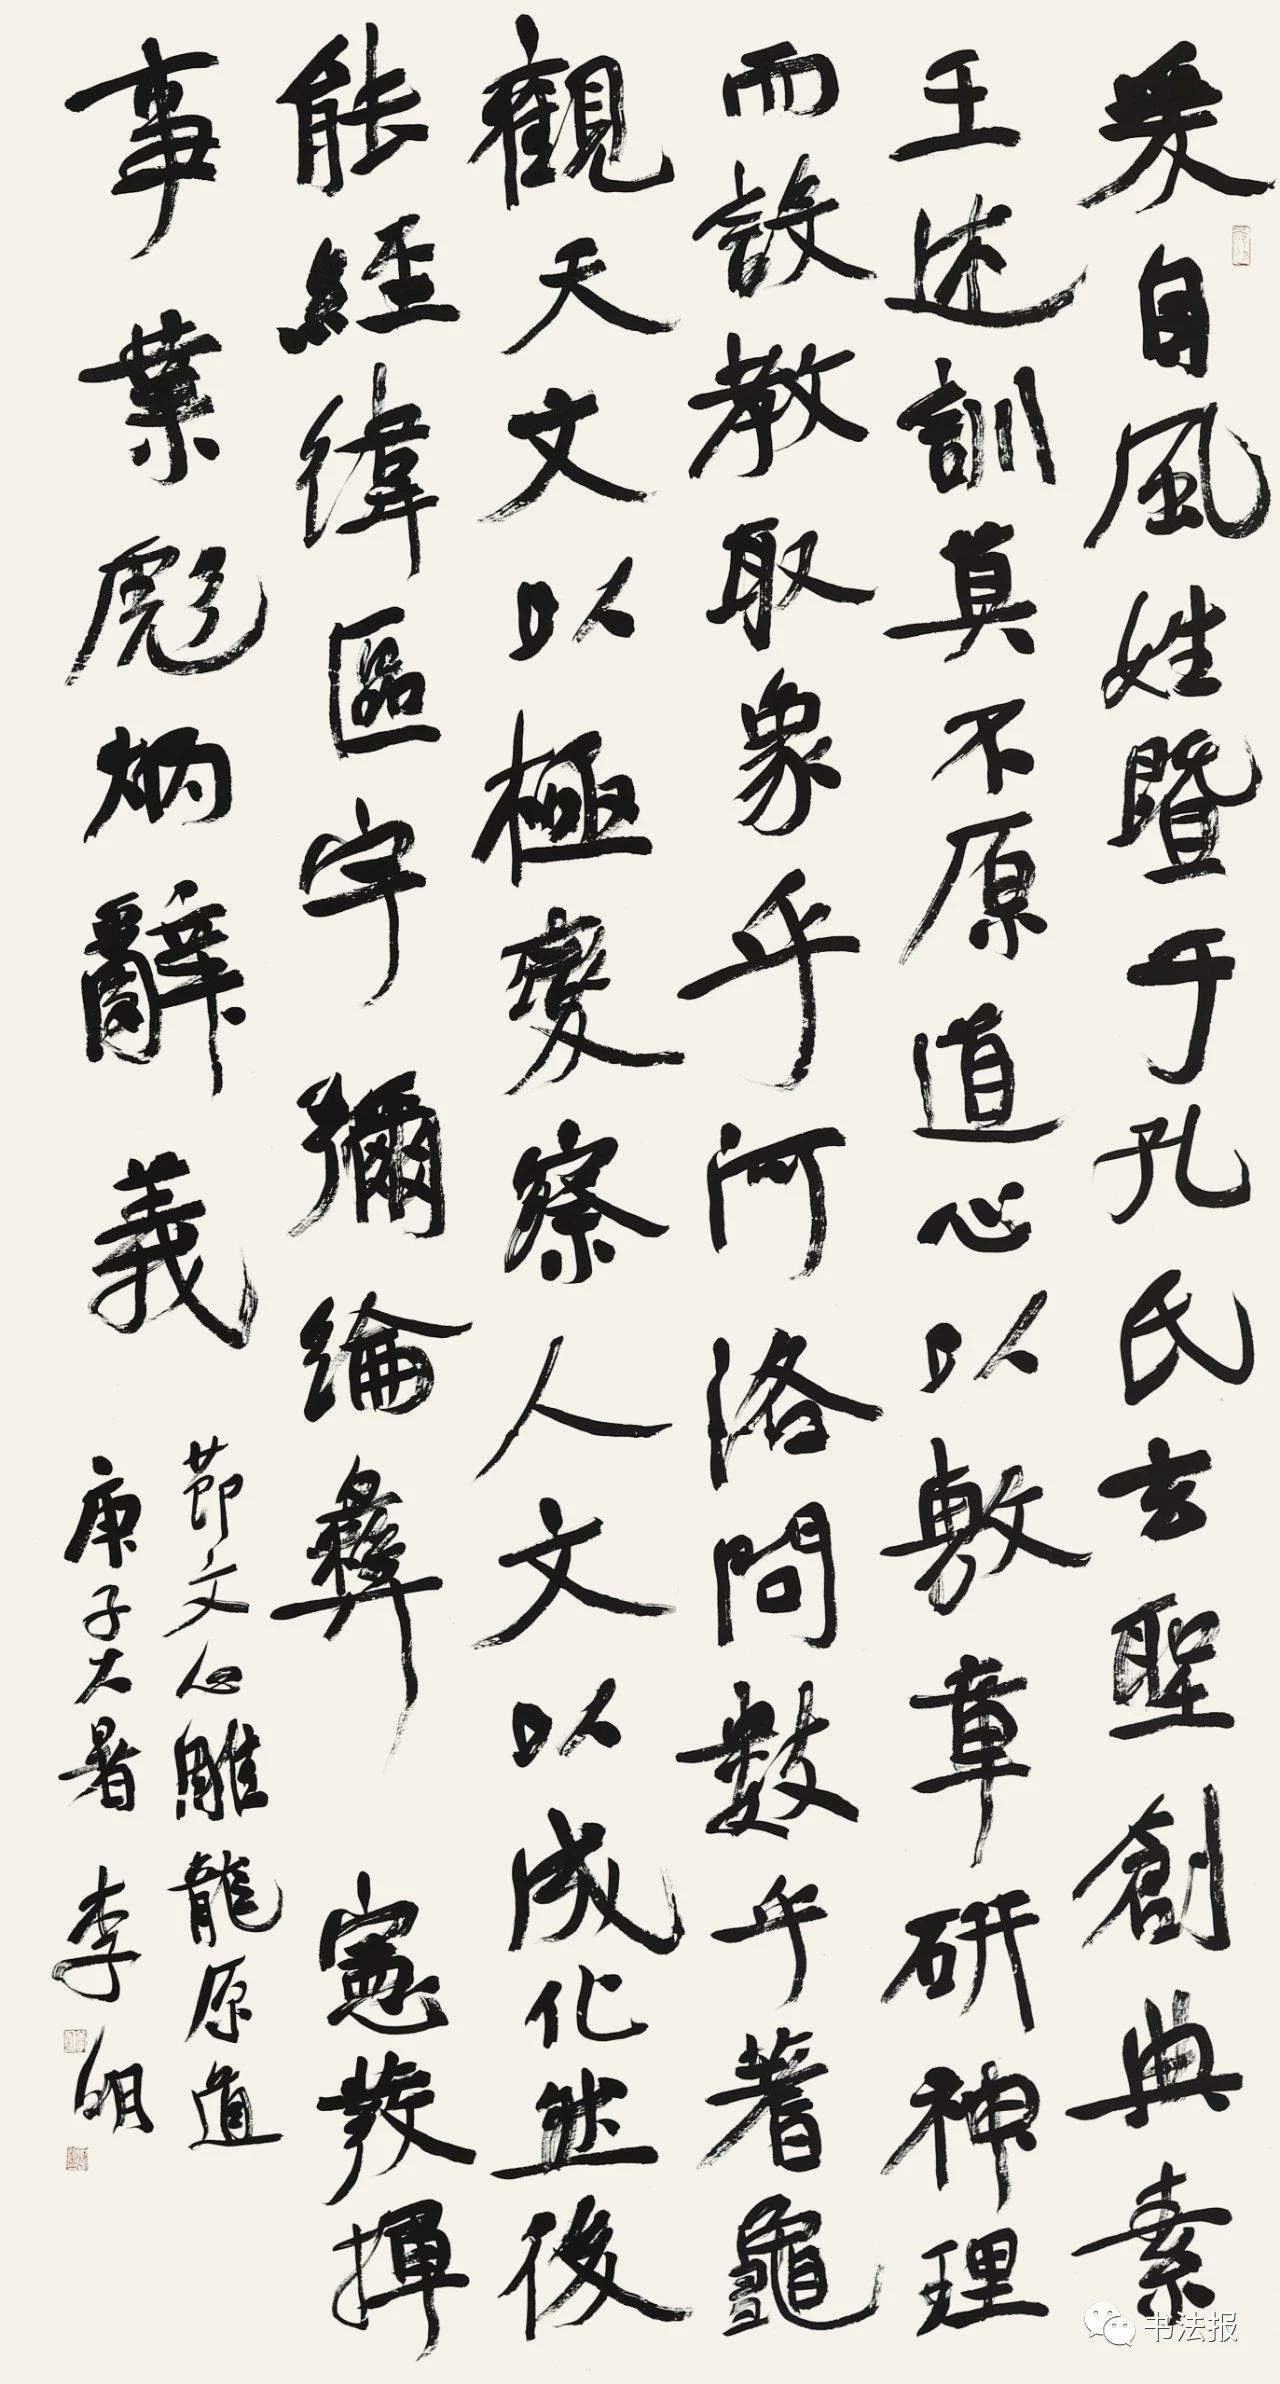 爰自風姓暨于孔氏玄聖創典素
王述訓莫不原道心以敷章研神理
而設教取象乎河洛問數乎蓍龜
觀天文以極變察人文以成化然後
能經緯區宇彌綸彝憲發揮
事業彪炳辭義
節文心雕龍原道
庚子大暑 李明
书法报